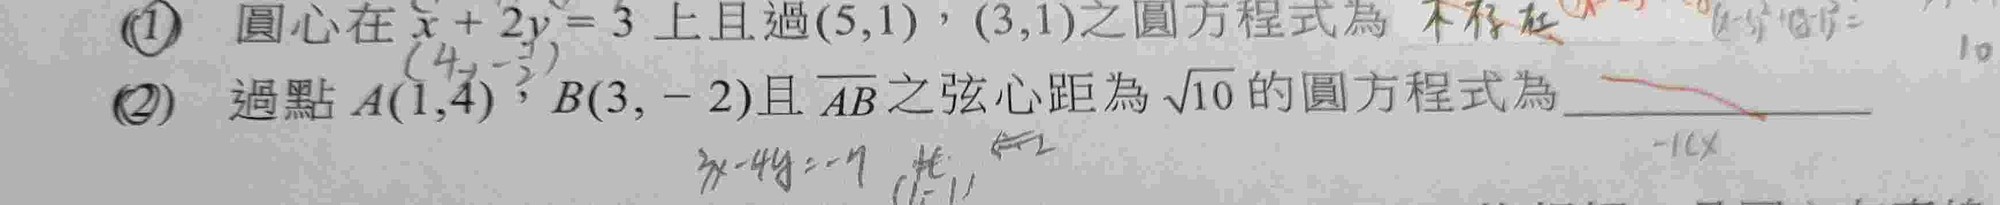 (1) 圓心在 x + 2y = 3 上且過(5,1)，(3,1)之圓方程式為 不存在
10
(4, -1/2)
(2) 過點 A(1,4)，B(3, - 2)且 AB 之弦心距為 √10 的圓方程式為
3x-4y=-7